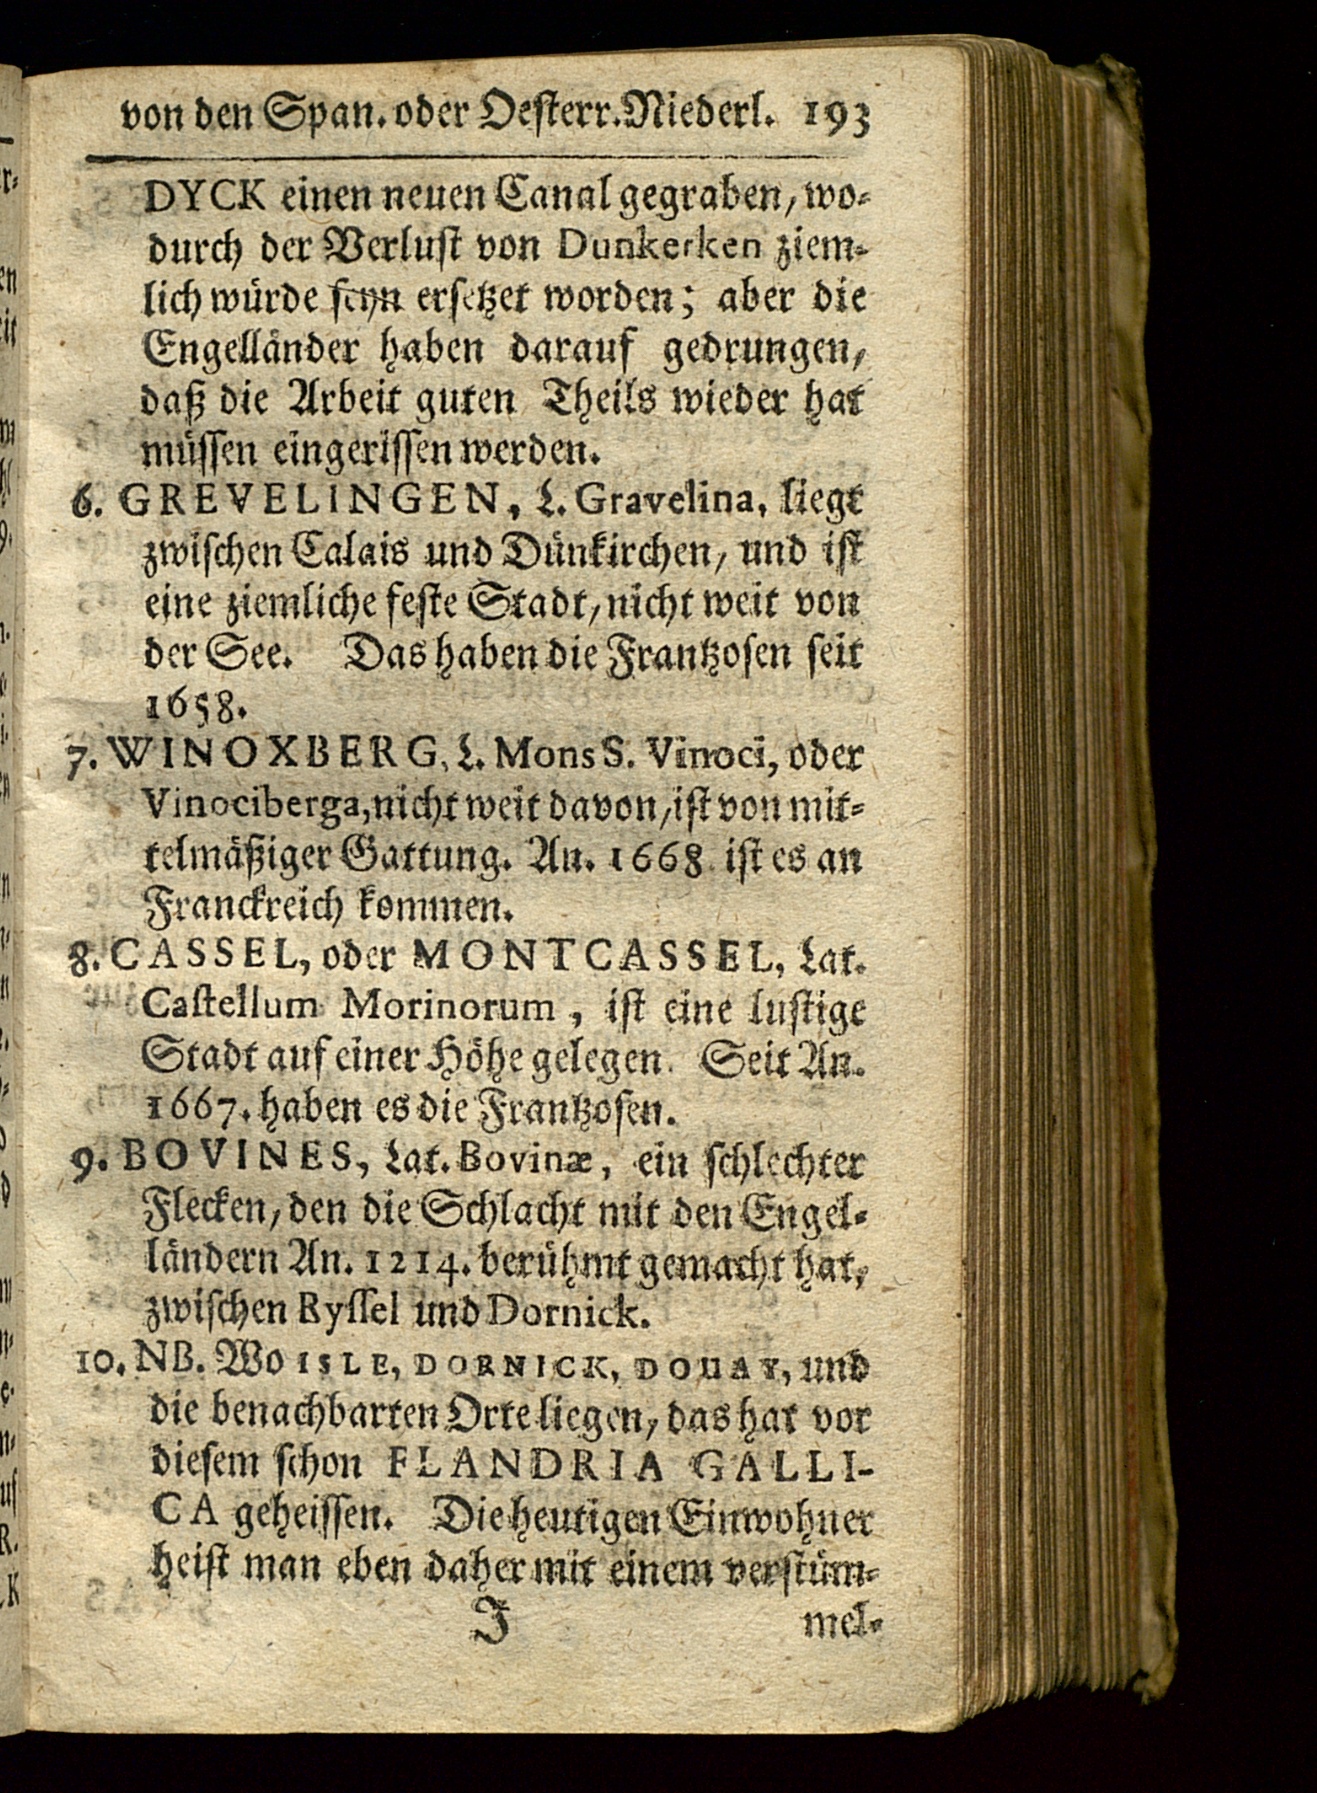 von den Span. oder Oesterr. Niederl. 193
DYCK einen neuen Canal gegraben, wo-
durch der Verlust von Dunkerken ziem-
lich würde seyn ersetzet worden; aber die
Engelländer haben darauf gedrungen,
daß die Arbeit guten Theils wieder hat
müssen eingerissen werden.
6. GREVELINGEN, L. Gravelina, liegt
zwischen Calais und Dünkirchen, und ist
eine ziemliche feste Stadt, nicht weit von
der See. Das haben die Frantzosen seit
1658.
7. WINOXBERG, L. Mons S. Vinoci, oder
Vinociberga, nicht weit davon, ist von mit-
telmäßiger Gattung. An. 1668 ist es an
Franckreich kommen.
8. CASSEL, oder MONTCASSEL, Lat.
Castellum Morinorum, ist eine lustige
Stadt auf einer Höhe gelegen. Seit An.
1667. haben es die Frantzosen.
9. BOVINES, Lat. Bovinæ, ein schlechter
Flecken, den die Schlacht mit den Engel-
ländern An. 1214. berühmt gemacht hat,
zwischen Ryssel und Dornick.
10. NB. Wo ISLE, DORNICK, DOUAY, und
die benachbarten Orte liegen, das hat vor
diesem schon FLANDRIA GALLI-
CA geheissen. Die heutigen Einwohner
heist man eben daher mit einem verstüm-
J mel-